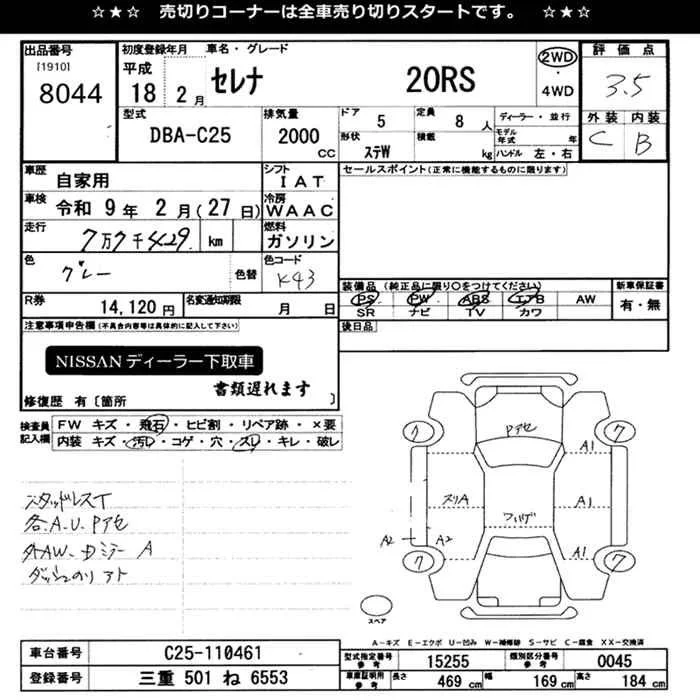 ☆★☆ 売切りコーナーは全車売り切りスタートです。 ☆★☆
出品番号 初度登録年月 車名・グレード 評価点
[1910] 平成 2WD
8044 18 2月 セレナ 20RS ・ 4WD 3.5
型式 排気量 ドア 5 定員 8人 ディーラー・並行 外装 内装
DBA-C25 2000 cc 形状 ステW 積載 kg モデル年式 年 C B
ハンドル 左・右
車歴 自家用 シフト IAT セールスポイント(正常に機能するものに限ります)
車検 令和 9年 2月(27日) 冷房 WAAC
走行 7万7千429 km 燃料 ガソリン
色 グレー 色替 色コード K43
装備品(純正品に限り○をつけてください) 新車保証書
R券 14,120円 名変通知期限 月 日 PS PW ABS エアB AW 有・無
SR ナビ TV カワ
注意事項申告欄(不具合内容等は具体的に記入して下さい) 後日品
NISSANディーラー下取車
書類遅れます
修復歴 有〔箇所 〕
検査員記入欄 FW キズ・飛石・ヒビ割・リペア跡・×要
内装 キズ・汚レ・コゲ・穴・スレ・キレ・破レ
スタッドレスT
各.A.U.Pアセ
外AW.Dミラー A
ダッシュのリアト
ク ク
Pアセ
A1
スリA A1
フハゲ
A2 A2 A1
ク ク
スペア
A-キズ E-エクボ U-凹み W-補修跡 S-サビ C-腐食 XX-交換済
車台番号 C25-110461 型式指定番号 参考 15255 類別区分番号 参考 0045
登録番号 三重 501 ね 6553 車庫証明用 参考 長さ 469 cm 幅 169 cm 高さ 184 cm